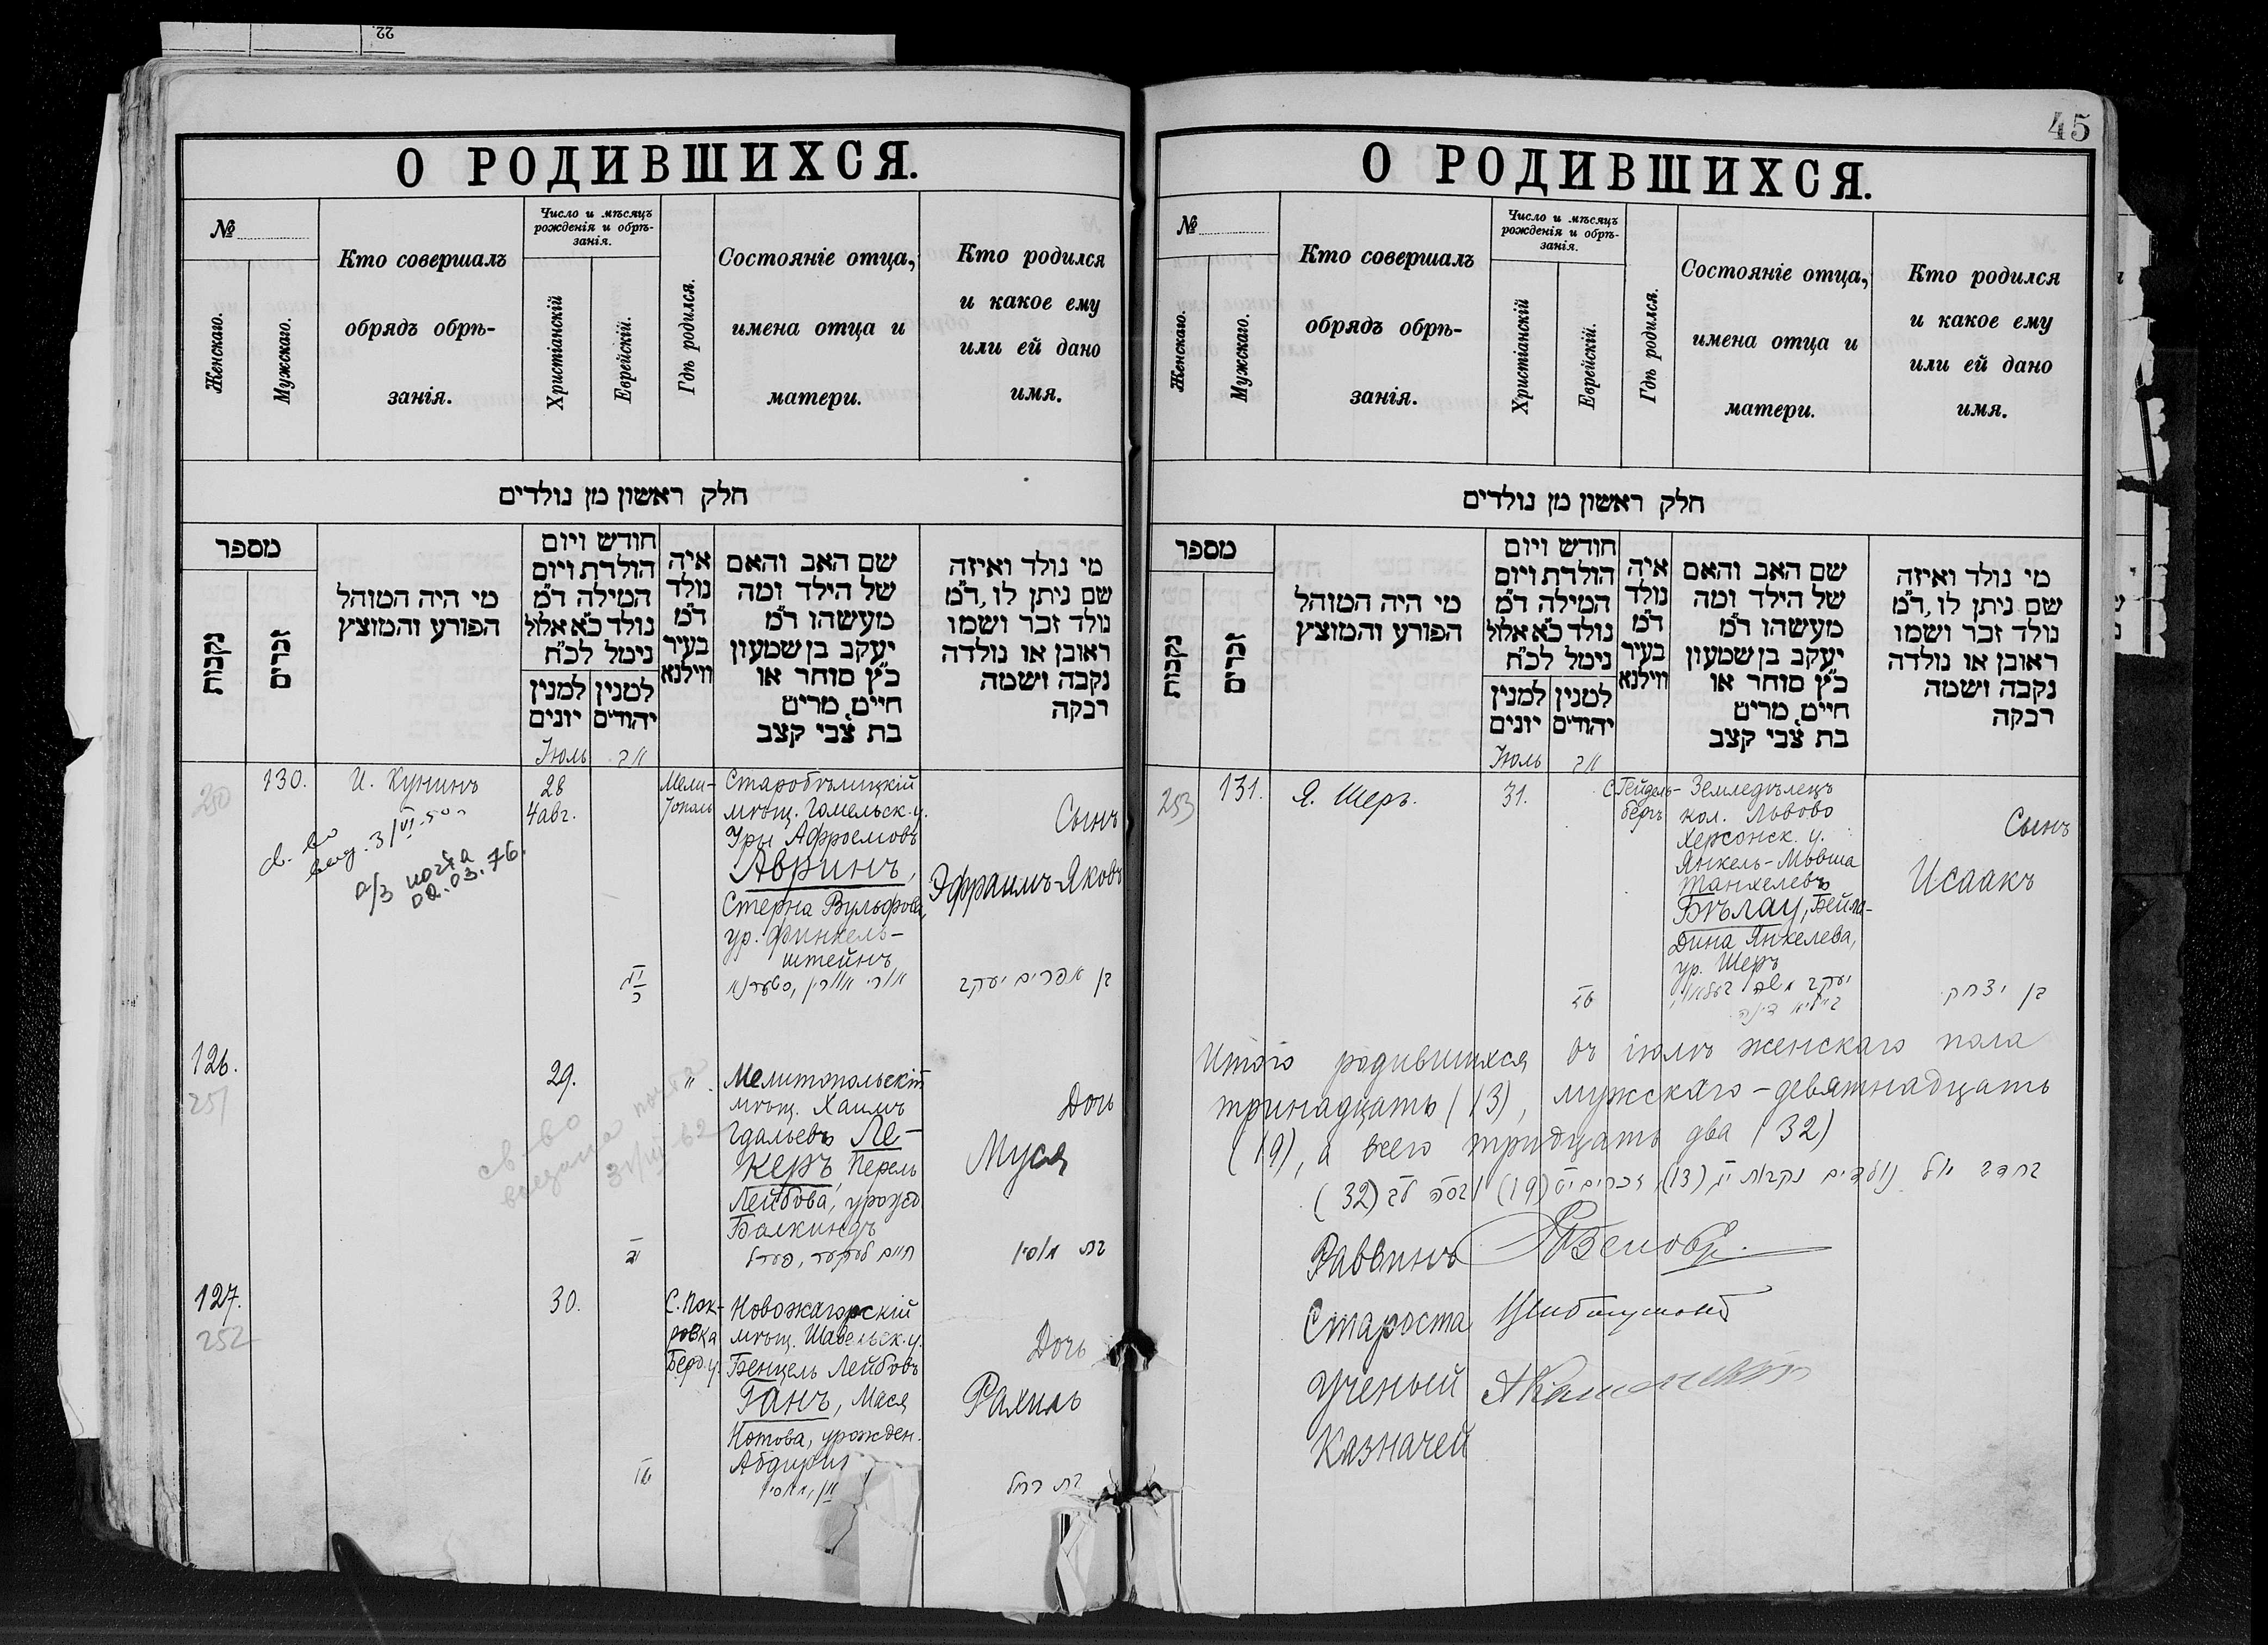 22.
О РОДИВШИХСЯ.
№
Женскаго.
Мужскаго.
Кто совершалъ
обрядъ обрѣ-
занія.
Число и мѣсяцъ
рожденія и обрѣ-
занія.
Христіанскій
Еврейскій.
Гдѣ родился.
Состояніе отца,
имена отца и
матери.
Кто родился
и какое ему
или ей дано
имя.
חלק ראשון מן נולדים
מספר
נקבות
זכרים
מי היה המוהל
הפורע והמוצץ
חודש ויום
הולדת ויום
המילה ד״מ
נולד כ״א אלול
נימל לכ״ח
למנין
יונים
למנין
יהודים
איה
נולד
ד״מ
בעיר
ווילנא
שם האב והאם
של הילד ומה
מעשהו ד״מ
יעקב בן שמעון
כ״ץ סוחר או
חייט, מרים
בת צבי קצב
מי נולד ואיזה
שם ניתן לו, ד״מ
נולד זכר ושמו
ראובן או נולדה
נקבה ושמה
רבקה
Іюль
אב
250
130.
И. Кунинъ
28
4 авг.
Мели-
тополь
Старобѣлицкій
мѣщ. Гомельск. у.
Уры Афроемовъ
Авринъ,
Стерна Вульфова,
ур. Финкель-
штейнъ
Сынъ
Эфраимъ-Яковъ
בן אפרים יעקב
св-во
выд. 3/VI-50 г.
а/з почта
02.03.76.
126.
251
29.
"
Мелитопольскій
мѣщ. Хаимъ
Гдальевъ Ле-
керъ, Перель
Лейбова, урожд
Балкиндъ
חיים לעקער, פערל
Дочь
Муся
בת מוסיא
св-во
выдано почта
127.
252
30.
С. Пок-
ровка
Берд. у.
Новожагорскій
мѣщ. Шавельск. у.
Бенцель Лейбовъ
Ганъ, Мася
Нотова, урожден.
Дочь
Рахиль
בת רחל
45
О РОДИВШИХСЯ.
№
Женскаго.
Мужскаго.
Кто совершалъ
обрядъ обрѣ-
занія.
Число и мѣсяцъ
рожденія и обрѣ-
занія.
Христіанскій
Еврейскій.
Гдѣ родился.
Состояніе отца,
имена отца и
матери.
Кто родился
и какое ему
или ей дано
имя.
חלק ראשון מן נולדים
מספר
נקבות
זכרים
מי היה המוהל
הפורע והמוצץ
חודש ויום
הולדת ויום
המילה ד״מ
נולד כ״א אלול
נימל לכ״ח
למנין
יונים
למנין
יהודים
איה
נולד
ד״מ
בעיר
ווילנא
שם האב והאם
של הילד ומה
מעשהו ד״מ
יעקב בן שמעון
כ״ץ סוחר או
חייט, מרים
בת צבי קצב
מי נולד ואיזה
שם ניתן לו, ד״מ
נולד זכר ושמו
ראובן או נולדה
נקבה ושמה
רבקה
Іюль
אב
253
131.
Я. Шеръ.
31.
С. Гейдель-
бергъ
Земледѣлецъ
кол. Львово
Херсонск. у.
Янкель-Мовша
Танхелевъ
Бѣлау, Бейла-
Дина Янкелева,
ур. Шеръ
Сынъ
Исаакъ
בן יצחק
Итого родившихся въ іюлѣ женскаго пола
тринадцать (13), мужскаго - девятнадцать
(19), а всего тридцать два (32)
בחדש יול נולדים נקבות יג (13), זכרים יט (19) ובסה לב (32)
Раввинъ
Староста
Ученый
Казначей